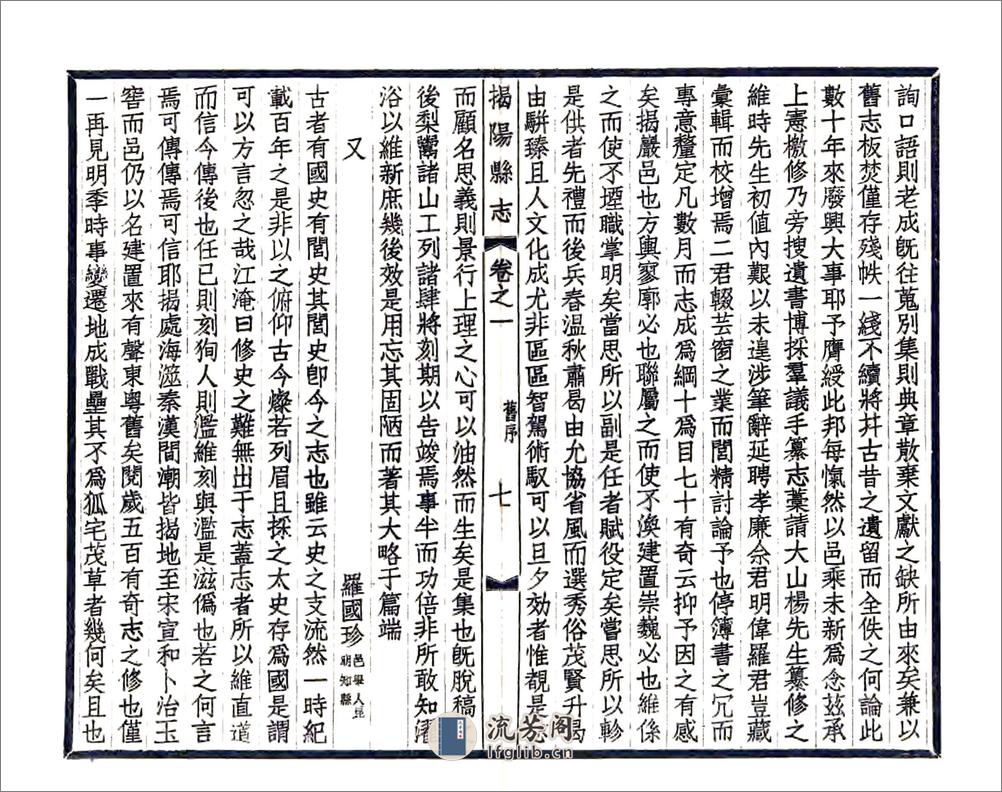 詢口語則老成旣往蒐別集則典章散棄文獻之缺所由來矣兼以
舊志板焚僅存殘帙一綫不續將幷古昔之遺留而全佚之何論此
數十年來廢興大事耶予膺綬此邦每愾然以邑乘未新爲念玆承
上憲檄修乃旁搜遺書博採羣議手纂志藁請大山楊先生纂修之
維時先生初值內艱以未遑涉筆辭延聘孝廉佘君明偉羅君豈藏
彙輯而校增焉二君輟芸窗之業而閭精討論予也停簿書之冗而
專意釐定凡數月而志成爲綱十爲目七十有奇云抑予因之有感
矣揭嚴邑也方輿寥廓必也聯屬之而使不渙建置崇巍必也維係
之而使不堙職掌明矣當思所以副是任者賦役定矣嘗思所以軫
是供者先禮而後兵春溫秋肅曷由允協省風而選秀俗茂賢升曷
由駢臻且人文化成尤非區區智駕術馭可以旦夕効者惟覩是志
揭陽縣志
卷之一
舊序
七
而顧名思義則景行上理之心可以油然而生矣是集也旣脫稿
後梨鬻諸山工列諸肆將刻期以告竣焉事半而功倍非所敢知濯
浴以維新庶幾後效是用忘其固陋而著其大略于篇端
又
羅國珍
邑舉人昆
朙知縣
古者有國史有閭史其閭史卽今之志也雖云史之支流然一時紀
載百年之是非以之俯仰古今燦若列眉且採之太史存爲國是謂
可以方言忽之哉江淹曰修史之難無出于志蓋志者所以維直道
而信今傳後也任已則刻狥人則濫維刻與濫是滋僞也若之何言
焉可傳傳焉可信耶揭處海澨秦漢間潮皆揭地至宋宣和卜治玉
窖而邑仍以名建置來有聲東粤舊矣閱歲五百有奇志之修也僅
一再見明季時事變遷地成戰壘其不爲狐宅茂草者幾何矣且也
流芳阁
lfglib.cn